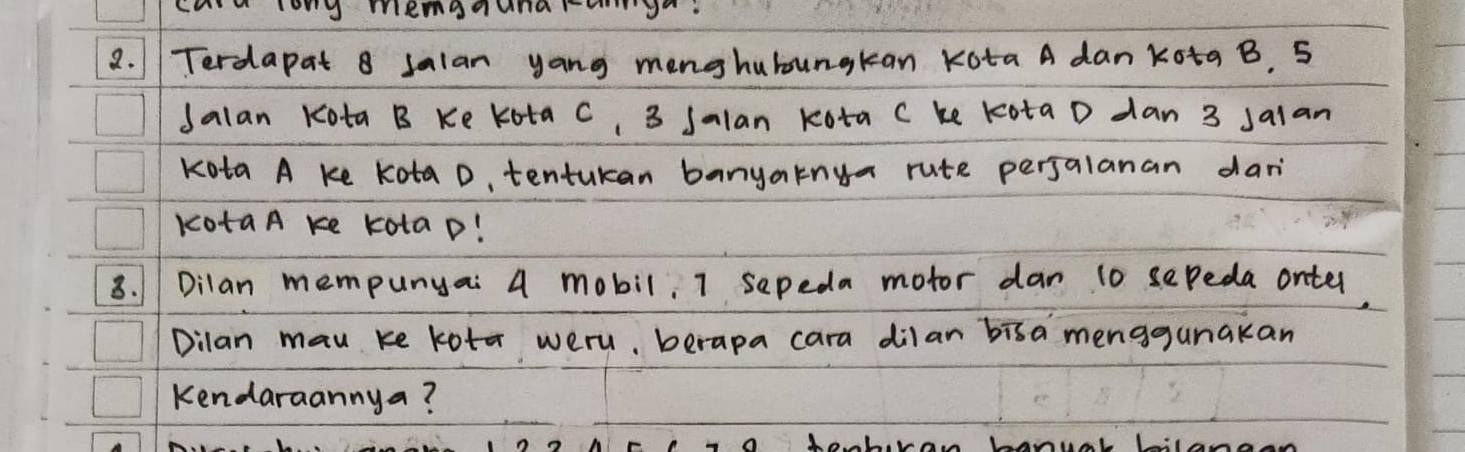 2. Terdapat 8 Jalan yang menghubungkan Kota A dan Kota B, 5
Jalan Kota B Ke Kota C, 3 Jalan Kota C ke Kota D dan 3 Jalan
Kota A Ke Kota D, tentukan banyaknya rute perjalanan dari
Kota A Ke Kota D!
3. Dilan mempunyai 4 mobil, 7 sepeda motor dan 10 sepeda ontel,
Dilan mau Ke Kota weru, berapa cara dilan bisa menggunakan
Kendaraannya?